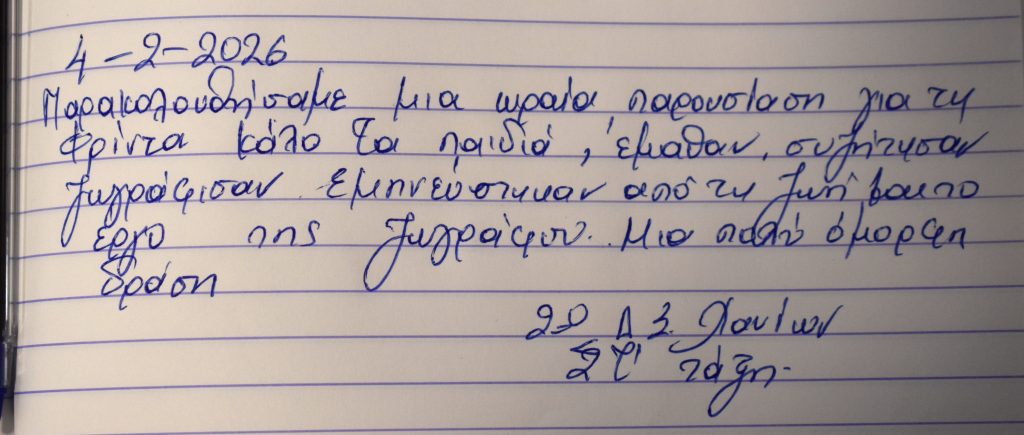 4-2-2026
Παρακολουθήσαμε μια ωραία παρουσίαση για τη
Φρίντα Κάλο Τα παιδιά, έμαθαν, συζήτησαν
ζωγράφισαν. Εμπνεύστηκαν από τη ζωή και το
έργο της ζωγράφου. Μια πολύ όμορφη
δράση
2ο Δ Σ. Χανίων
ΣΤ' τάξη.